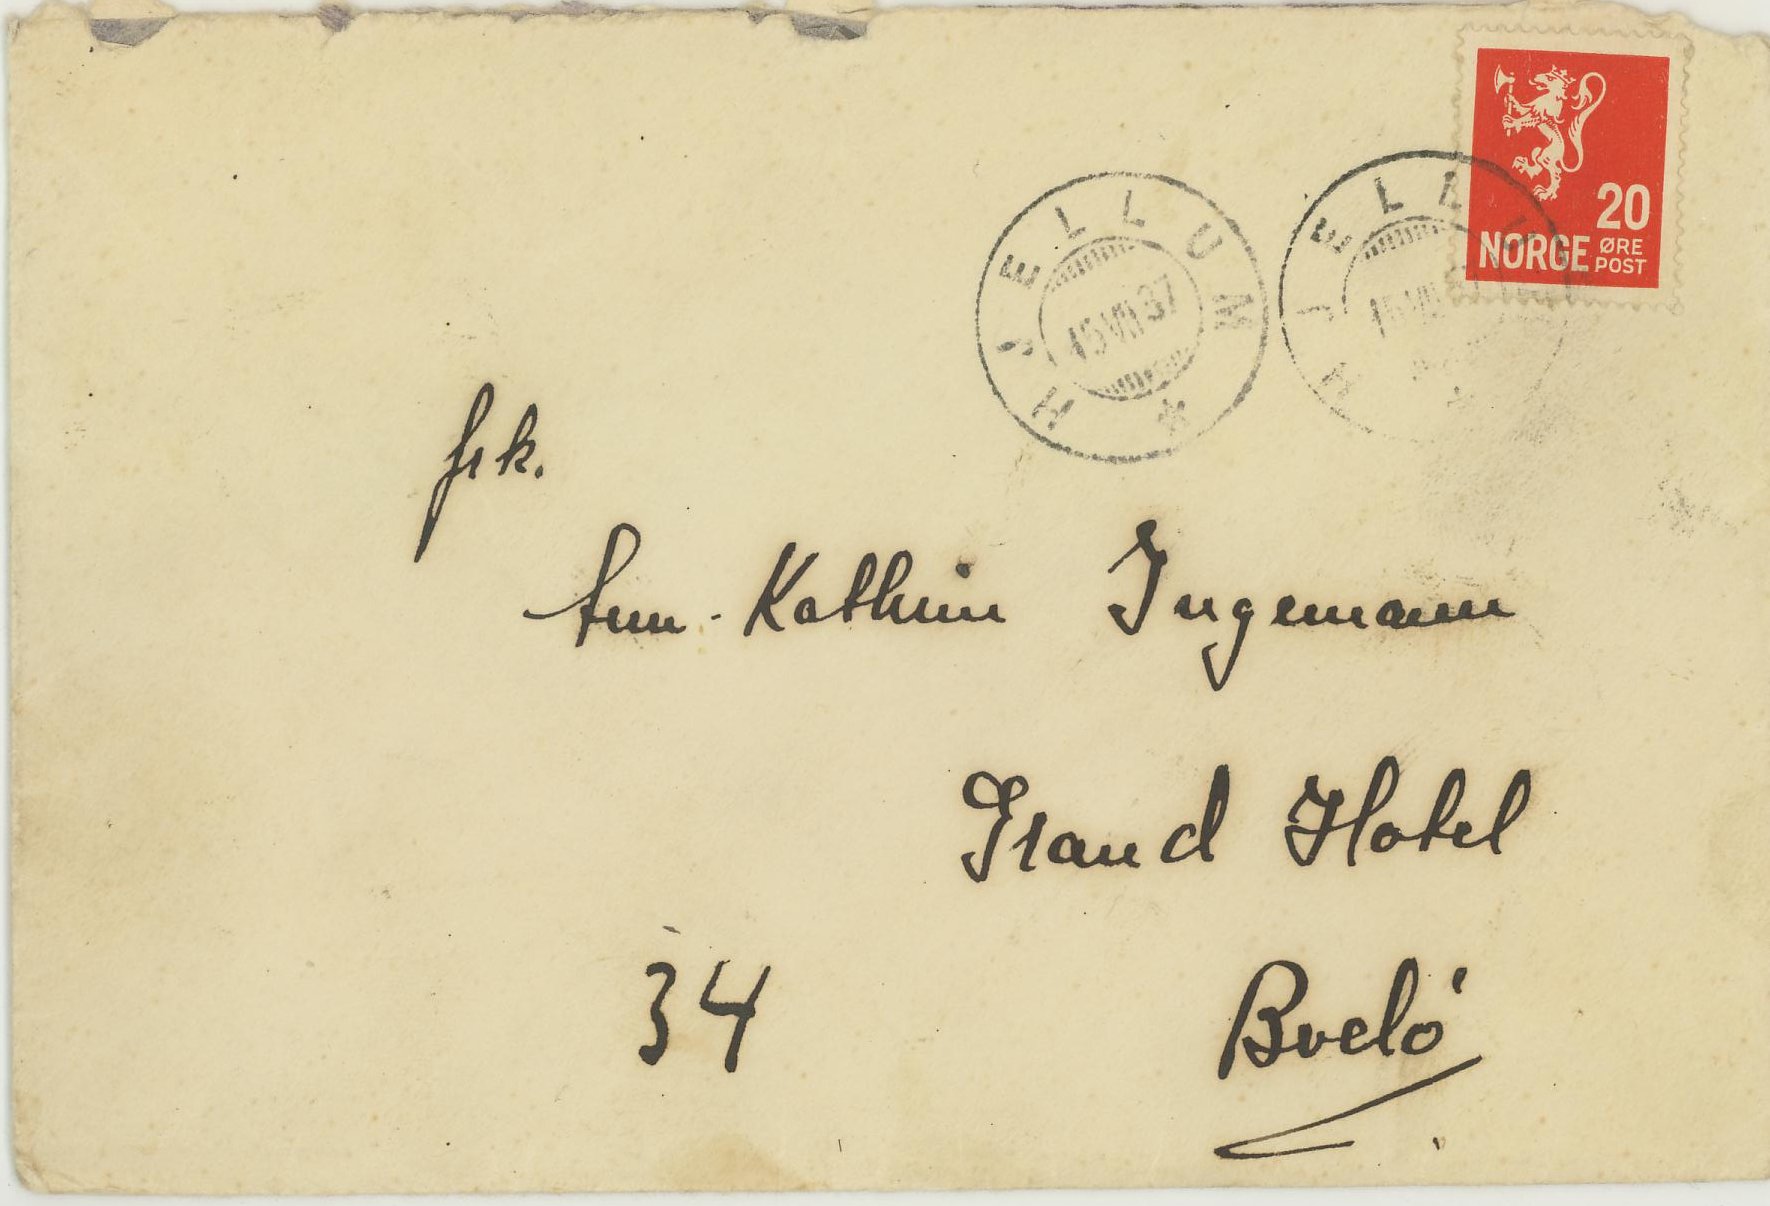 20
NORGE ØRE POST
HJELLUM
15 VII 37
HJELLUM
15 VII
Frk.
Ann-Kathrin Ingemann
Grand Hotel
34
Bodø